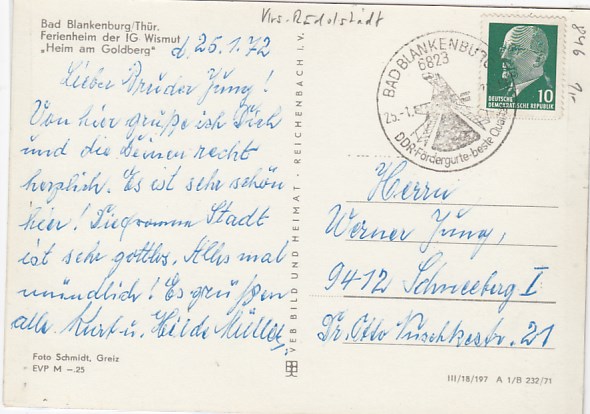 Bad Blankenburg/Thür.
Ferienheim der IG Wismut
„Heim am Goldberg"
d. 25.1.72
Lieber Bruder Jung!
Von hier grüße ich Dich
und die Deinen recht
herzlich. Es ist sehr schön
hier! Die Stadt
ist sehr gottlos. Alles mal
mündlich! Es grüßen
alle Kurt u. Hilde Müller
Foto Schmidt, Greiz
EVP M –.25
VEB BILD UND HEIMAT · REICHENBACH I. V.
Krs. Rudolstadt
BAD BLANKENBURG
6823
25.-1.
DDR-Fördergurte-beste
10
DEUTSCHE
DEMOKRATISCHE REPUBLIK
846
Herrn
Werner Jung,
9412 Schneeberg I
Dr. Otto Nuschkestr. 21
III/18/197 A 1/B 232/71